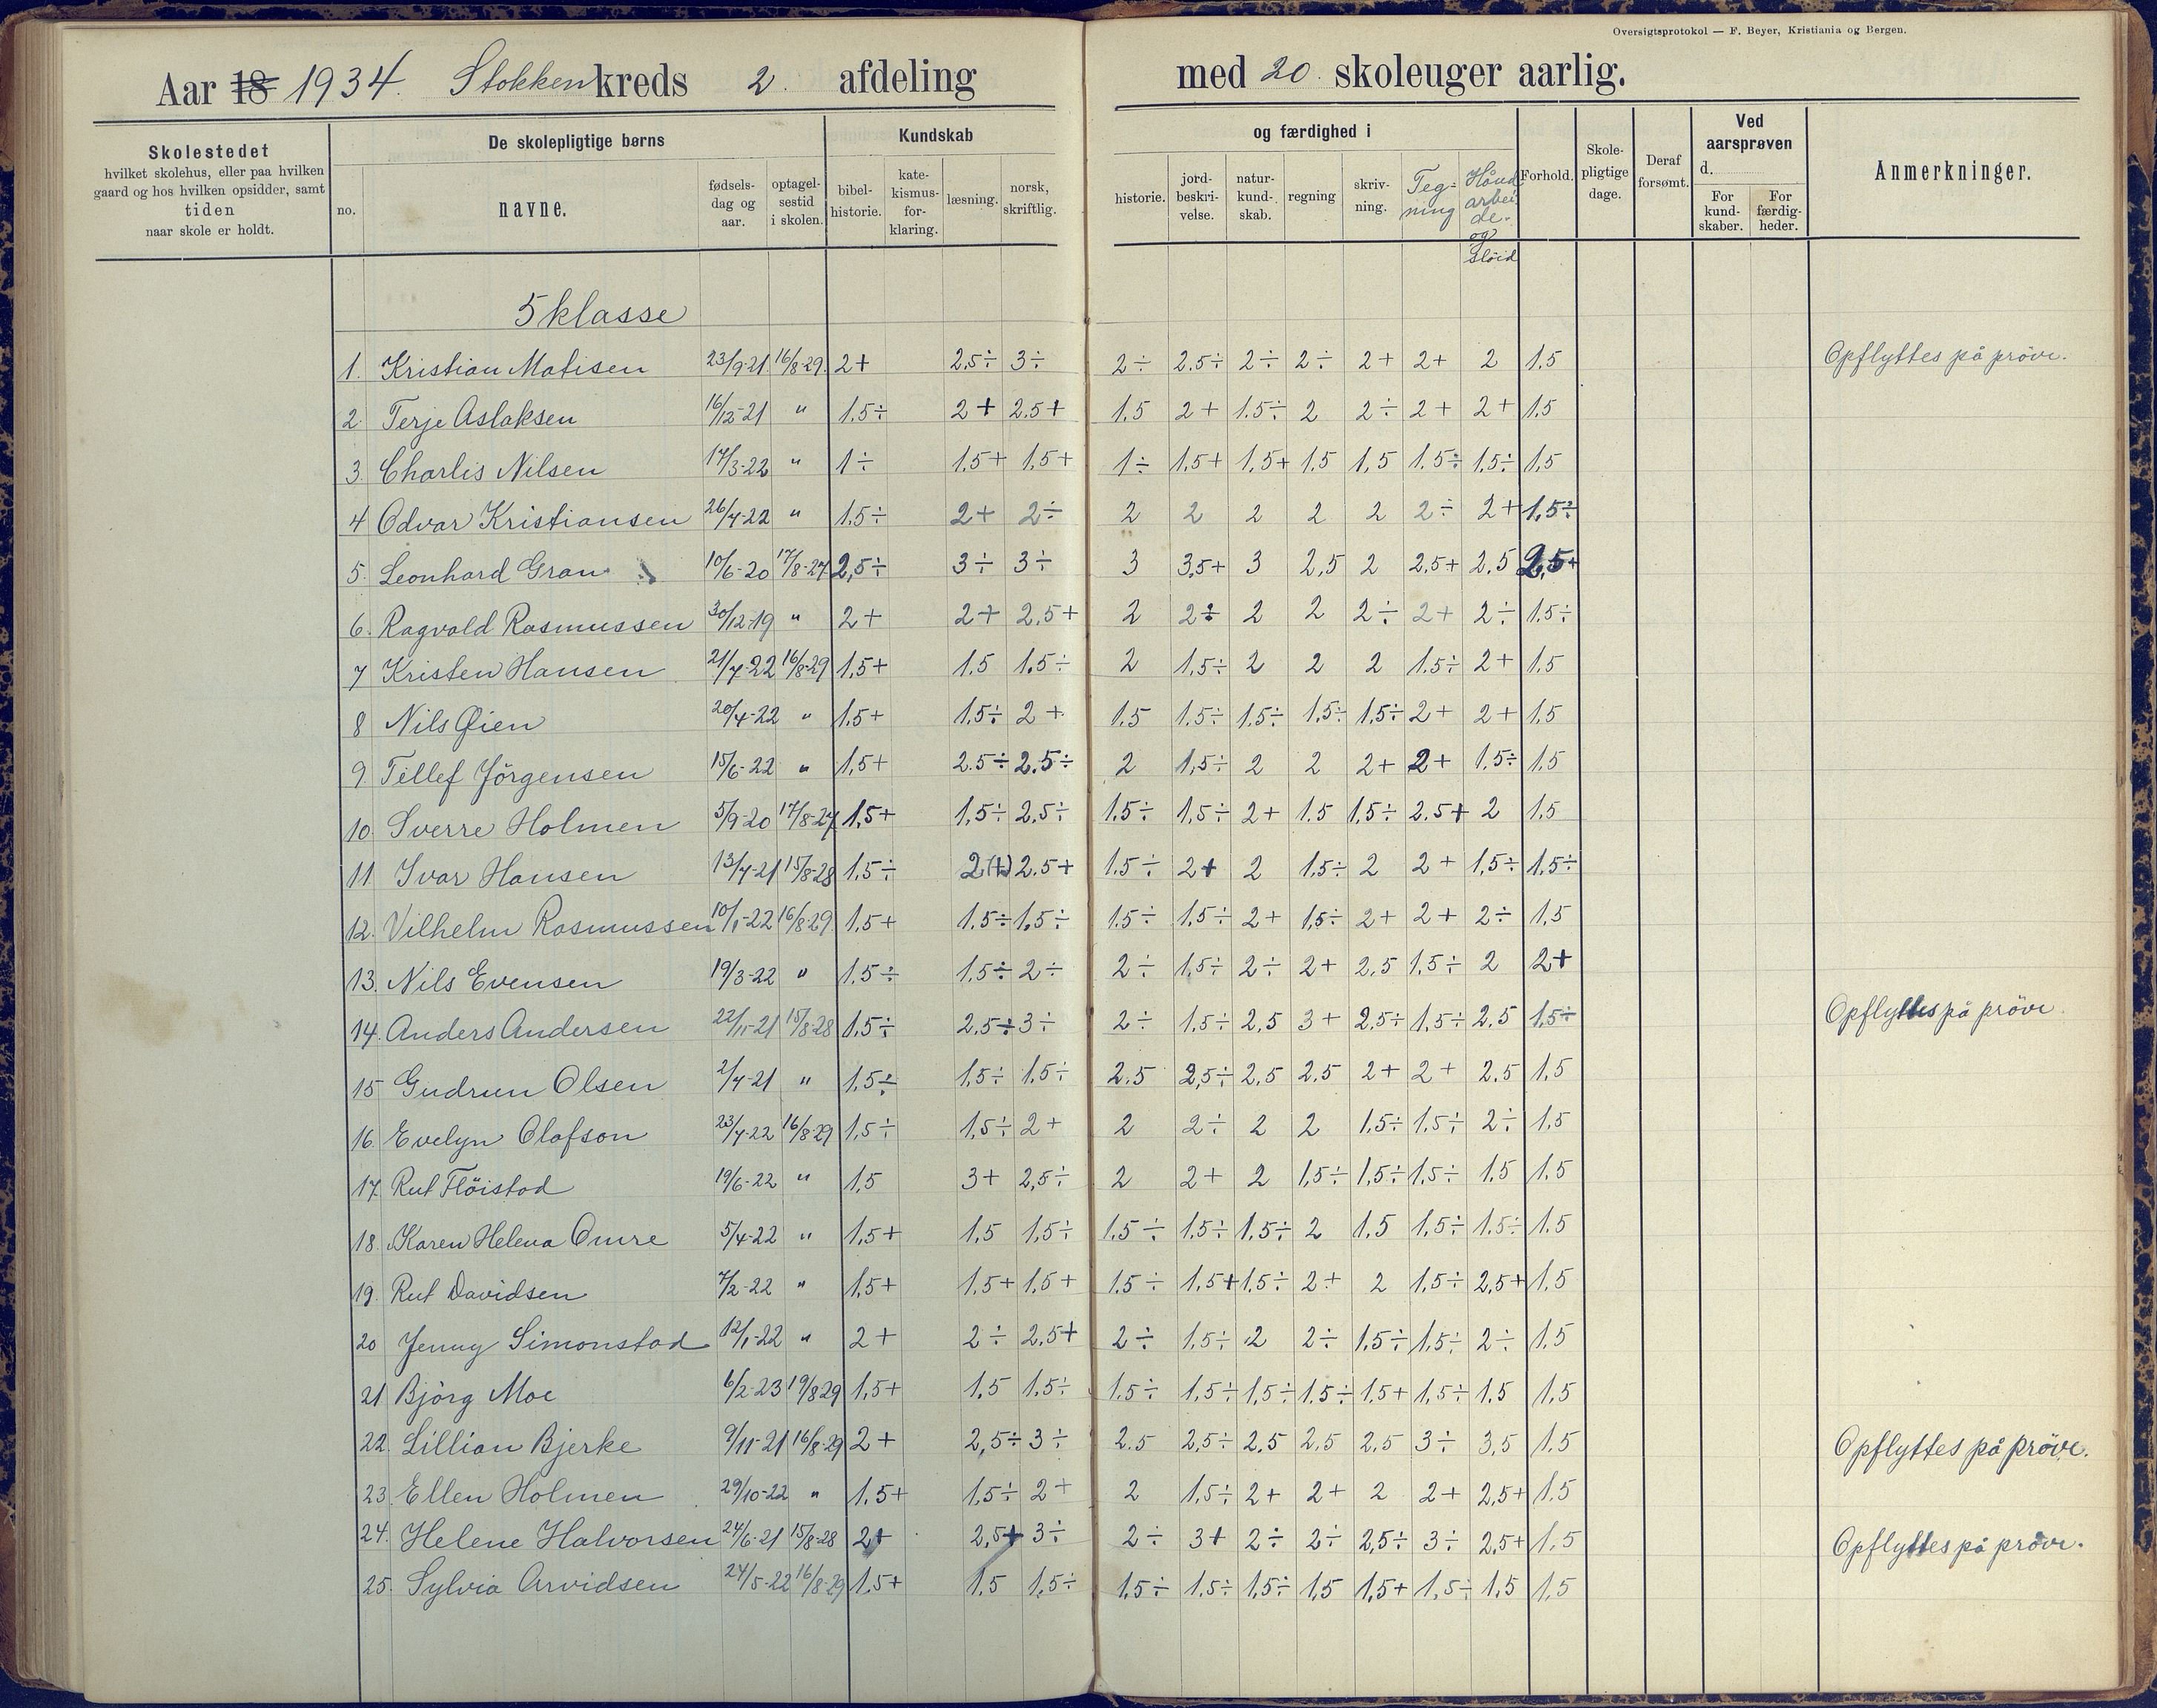 Oversigtsprotokol — F. Beyer, Kristiania og Bergen.
Aar 18 1934. Stokken kreds 2. afdeling med 20. skoleuger aarlig.
Skolestedet
hvilket skolehus, eller paa hvilken
gaard og hos hvilken opsidder, samt
tiden
naar skole er holdt.
De skolepligtige børns
no.
navne.
fødsels-
dag og
aar.
optagel-
sestid
i skolen.
Kundskab og færdighed i
bibel-
historie.
kate-
kismus-
for-
klaring.
læsning.
norsk,
skriftlig.
historie.
jord-
beskri-
velse.
natur-
kund-
skab.
regning
skriv-
ning.
Teg-
ning
Hånd
arbei
de-
og
slöid
Forhold.
Skole-
pligtige
dage.
Deraf
forsømt.
Ved
aarsprøven
d.
For
kund-
skaber.
For
færdig-
heder.
Anmerkninger.
5 klasse
1. Kristian Matisen 23/9-21 16/8-29. 2+ 2.5÷ 3÷ 2÷ 2.5÷ 2÷ 2÷ 2+ 2+ 2 1.5 Opflyttes på pröve.
2. Terje Aslaksen 16/12-21 " 1.5÷ 2+ 2.5+ 1.5 2+ 1.5÷ 2 2÷ 2+ 2+ 1.5
3. Charlis Nilsen 17/3-22 " 1÷ 1.5+ 1,5+ 1÷ 1,5+ 1,5+ 1.5 1,5 1.5÷ 1,5÷ 1,5
4 Odvar Kristiansen 26/7-22 " 1.5÷ 2+ 2÷ 2 2 2 2 2 2÷ 2+ 1,5÷
5. Leonhard Gran 10/6-20 17/8-27 2,5÷ 3÷ 3÷ 3 3,5+ 3 2,5 2 2.5+ 2.5 2,5+
6. Ragvald Rasmussen 30/12-19 " 2+ 2+ 2,5+ 2 2÷ 2 2 2÷ 2+ 2÷ 1.5÷
7 Kristen Hansen 21/7-22 16/8-29 1,5+ 1.5 1.5÷ 2 1,5÷ 2 2 2 1.5÷ 2+ 1,5
8 Nils Øien 20/4-22 " 1.5+ 1,5÷ 2+ 1.5 1.5÷ 1,5÷ 1,5÷ 1,5÷ 2+ 2+ 1,5
9. Tellef Jörgensen 15/6-22 " 1,5+ 2.5÷ 2.5÷ 2 1,5÷ 2 2 2+ 2+ 1,5÷ 1.5
10. Sverre Holmen 5/9-20 17/8-27 1,5+ 1,5÷ 2,5÷ 1.5÷ 1,5÷ 2+ 1.5 1,5÷ 2.5+ 2 1,5
11 Ivar Hansen 13/7-21 15/8-28 1,5÷ 2(+) 2.5+ 1.5÷ 2+ 2 1,5÷ 2 2+ 1,5÷ 1,5÷
12. Vilhelm Rasmussen 10/1-22 16/8-29. 1,5+ 1.5÷ 1,5÷ 1.5÷ 1,5÷ 2+ 1,5÷ 2+ 2+ 2÷ 1,5
13. Nils Evensen 19/3-22 " 1,5÷ 1,5÷ 2÷ 2÷ 1,5÷ 2÷ 2+ 2,5 1,5÷ 2 2+
14. Anders Andersen 22/11-21 15/8-28 1,5÷ 2,5÷ 3÷ 2÷ 1,5÷ 2,5 3+ 2,5÷ 1,5÷ 2.5 1,5÷ Opflyttes på pröve.
15 Gudrun Olsen 2/7-21 " 1,5÷ 1,5÷ 1,5÷ 2.5 2,5÷ 2,5 2.5 2+ 2+ 2.5 1,5
16. Evelyn Olafson 23/7-22 16/8-29 1,5÷ 1,5÷ 2+ 2 2÷ 2 2 1.5÷ 1,5÷ 2÷ 1,5
17. Rut Flöistad 19/6-22 " 1,5 3+ 2,5÷ 2 2+ 2 1,5÷ 1,5÷ 1,5÷ 1,5 1,5
18. Karen Helena Omre 5/4-22 " 1,5+ 1,5 1,5÷ 1.5÷ 1,5÷ 1,5÷ 2 1.5 1,5÷ 1.5÷ 1.5
19. Rut Davidsen 7/2-22 " 1,5+ 1,5+ 1,5+ 1.5÷ 1,5+ 1,5÷ 2+ 2 1,5÷ 2,5+ 1,5
20 Jenny Simonstad 12/1-22 " 2+ 2÷ 2,5+ 2÷ 1,5÷ 2 2÷ 1,5÷ 1,5÷ 2÷ 1,5
21 Björg Moe 6/2-23 19/8-29 1,5+ 1,5 1,5÷ 1.5÷ 1,5÷ 1,5÷ 1.5÷ 1.5+ 1,5÷ 1.5 1,5
22. Lillian Bjerke 9/11-21 16/8-29 2+ 2,5÷ 3÷ 2.5 2,5÷ 2,5 2,5 2,5 3÷ 3,5 1,5 Opflyttes på pröve.
23. Ellen Holmen 29/10-22 " 1.5+ 1,5÷ 2+ 2 1,5÷ 2+ 2+ 2 2+ 2,5+ 1.5
24. Helene Halvorsen 24/6-21 15/8-28 2+ 2,5+ 3÷ 2÷ 3+ 2÷ 2÷ 2,5÷ 3÷ 2,5+ 1,5 Opflyttes på pröve.
25. Sylvia Arvidsen 24/5-22 16/8-29 1,5+ 1,5 1,5÷ 1,5÷ 1,5÷ 1,5÷ 1,5 1,5+ 1,5÷ 1,5 1,5